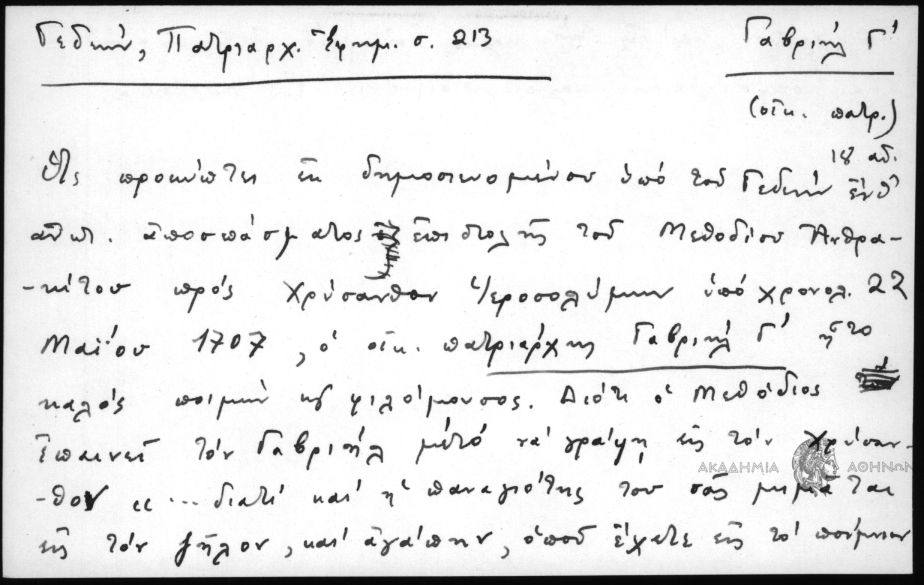 Γεδεών, Πατριαρχ. Ἐφημ. σ. 213
Γαβριήλ Γ'
(οἰκ. πατρ.)
18 αἰ.
Ὡς προκύπτει ἐκ δημοσιευομένου ὑπό τοῦ Γεδεών ἔνθ'
ἀνωτ. ἀποσπάσματος ἐπιστολῆς τοῦ Μεθοδίου Ἀνθρα-
-κίτου πρός Χρύσανθον Ἱεροσολύμων ὑπό χρονολ. 22
Μαΐου 1707, ὁ οἰκ. πατριάρχης Γαβριήλ Γ' ἦτο
καλός ποιμήν καί φιλόμουσος. Διότι ὁ Μεθόδιος
ἐπαινεῖ τόν Γαβριήλ μέ τό νά γράψῃ εἰς τόν Χρύσαν-
-θον «...διατί καί ἡ παναγιότης του σᾶς μιμᾶται
εἰς τόν ζῆλον, καί ἀγάπην, ὁποῦ ἔχατε εἰς τό ποίμνιον
ΑΚΑΔΗΜΙΑ ΑΘΗΝΩΝ